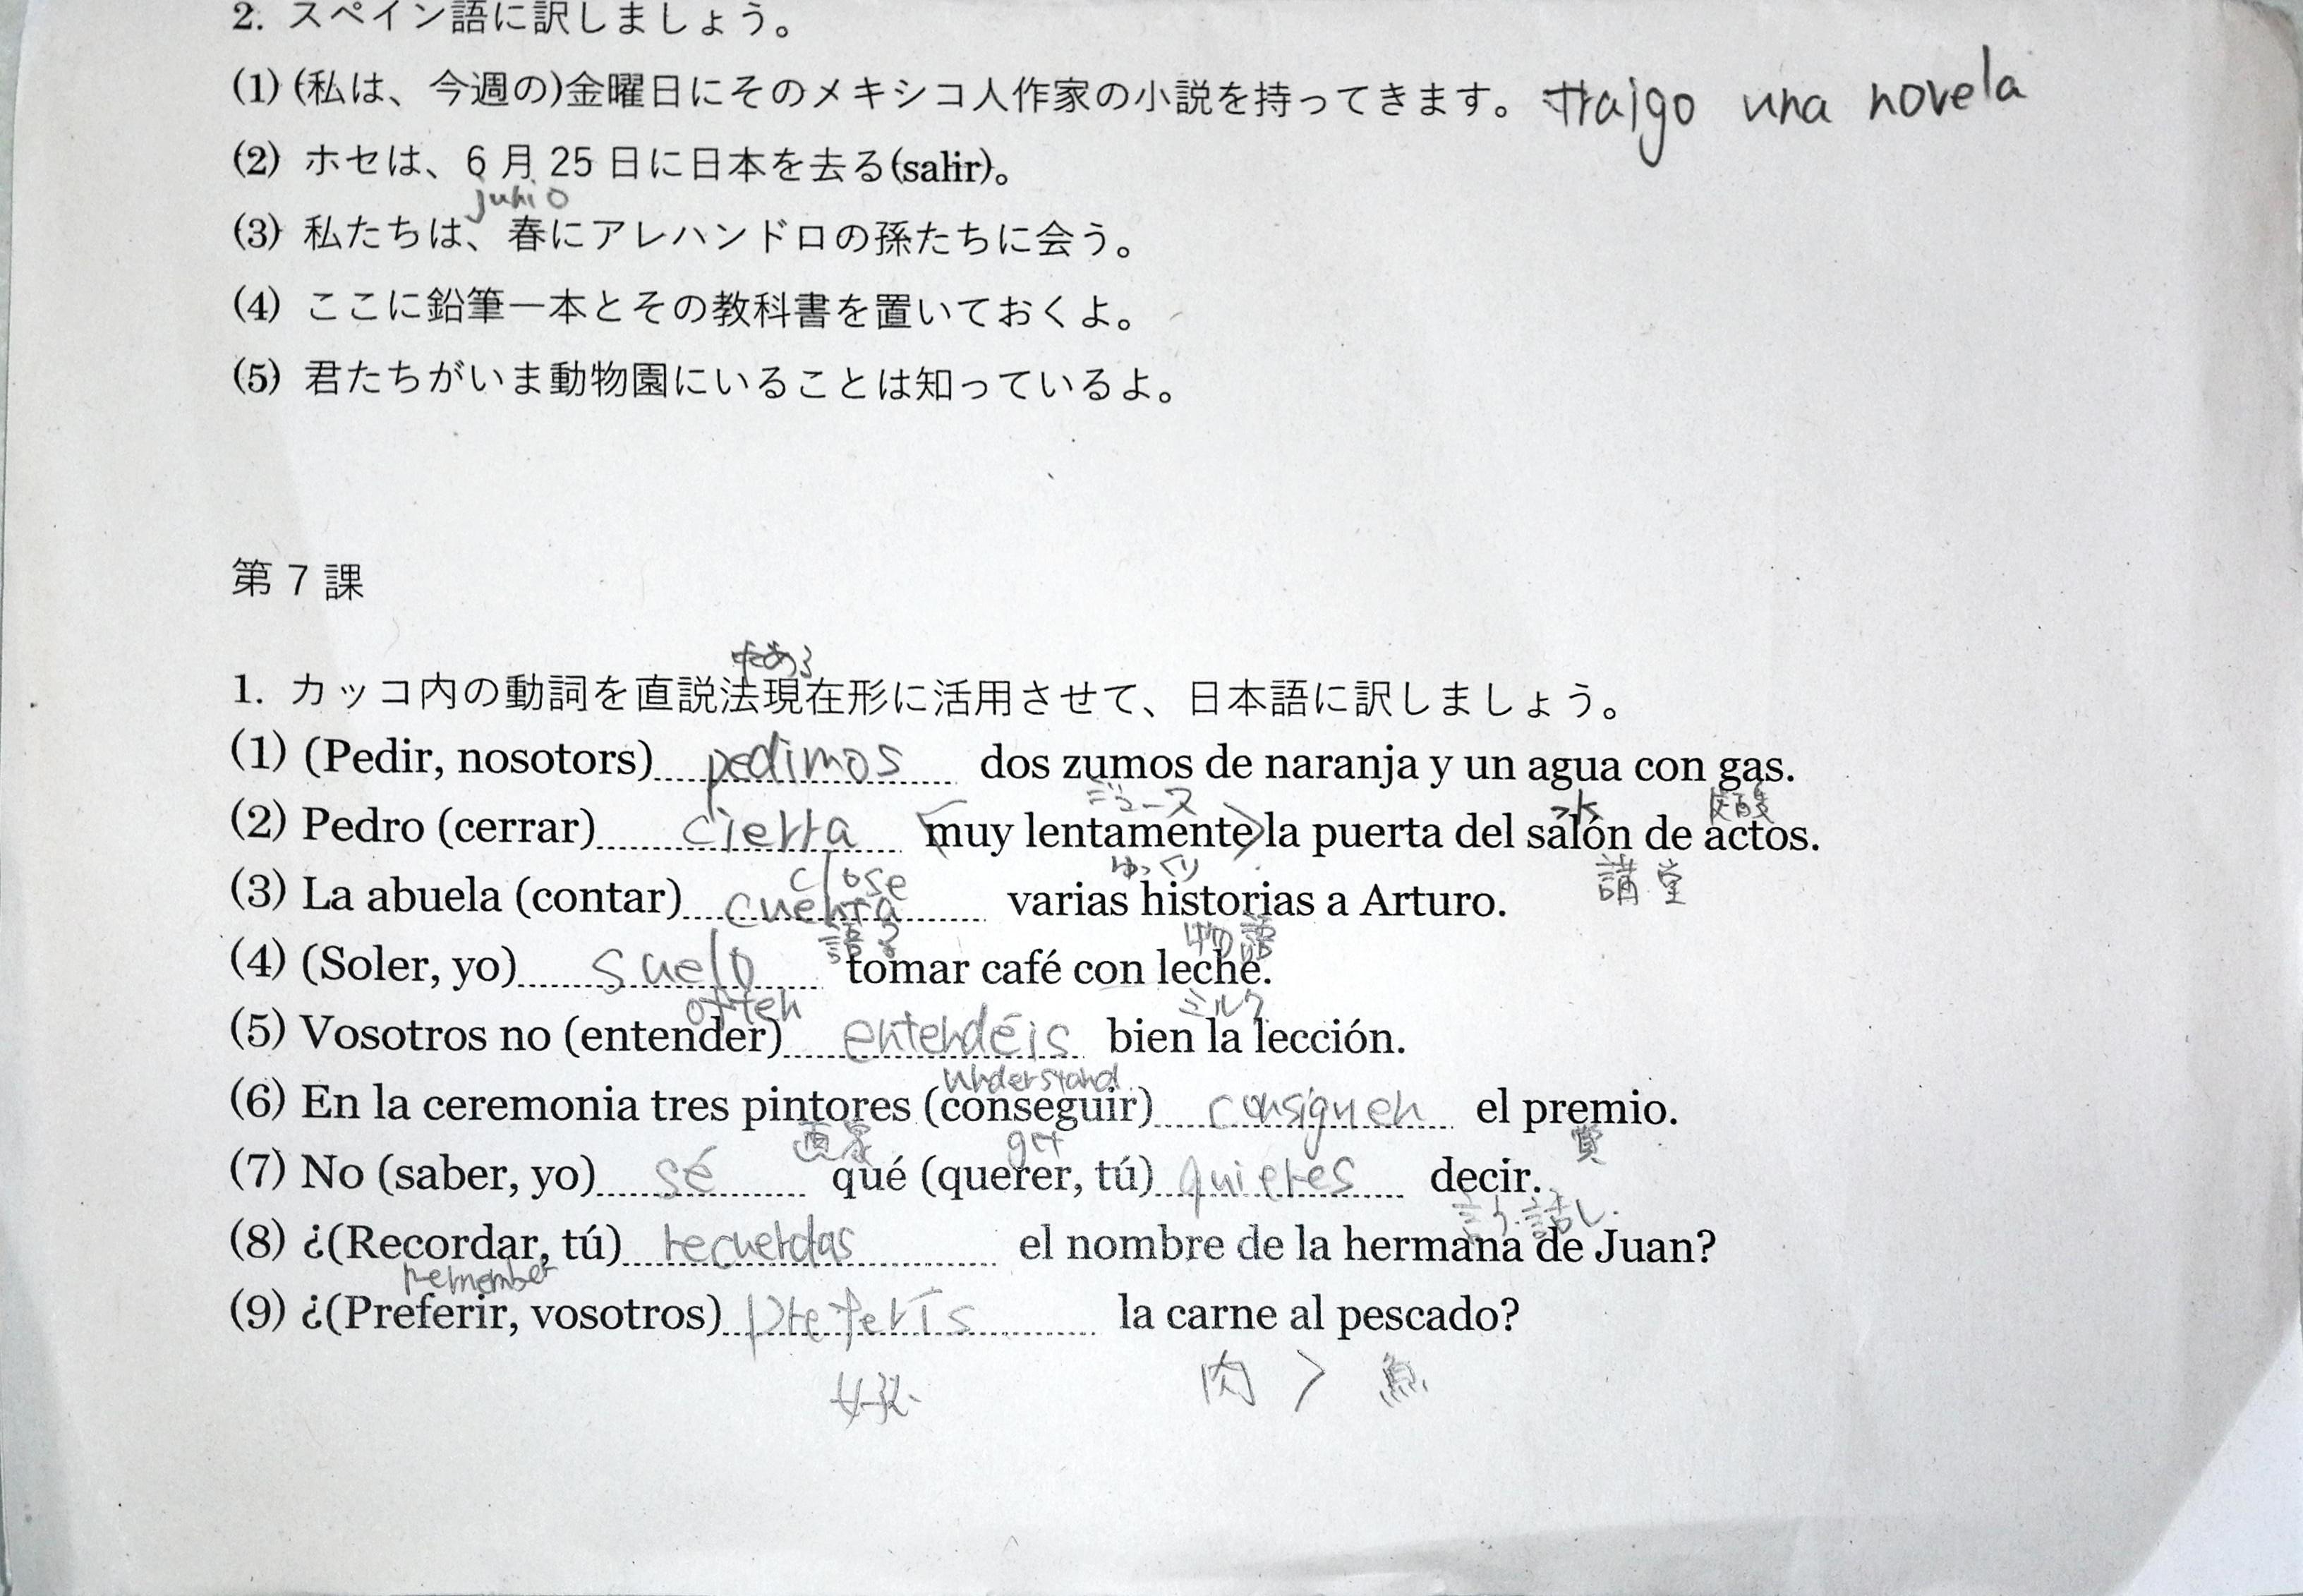 2. スペイン語に訳しましょう。
(1) (私は、今週の)金曜日にそのメキシコ人作家の小説を持ってきます。 traigo una novela
(2) ホセは、6月25日に日本を去る(salir)。
junio
(3) 私たちは、春にアレハンドロの孫たちに会う。
(4) ここに鉛筆一本とその教科書を置いておくよ。
(5) 君たちがいま動物園にいることは知っているよ。
第7課
1. カッコ内の動詞を直説法現在形に活用させて、日本語に訳しましょう。
(1) (Pedir, nosotors) pedimos dos zumos de naranja y un agua con gas.
ジュース 水 炭酸
(2) Pedro (cerrar) cierra muy lentamente la puerta del salón de actos.
close ゆっくり 講堂
(3) La abuela (contar) cuenta varias historias a Arturo.
語る 物語
(4) (Soler, yo) suelo tomar café con leche.
often ミルク
(5) Vosotros no (entender) entendéis bien la lección.
understand
(6) En la ceremonia tres pintores (conseguir) consiguen el premio.
画家 get 賞
(7) No (saber, yo) sé qué (querer, tú) quieres decir.
言う.話し.
(8) ¿(Recordar, tú) recuerdas el nombre de la hermana de Juan?
remember
(9) ¿(Preferir, vosotros) preferís la carne al pescado?
肉 > 魚